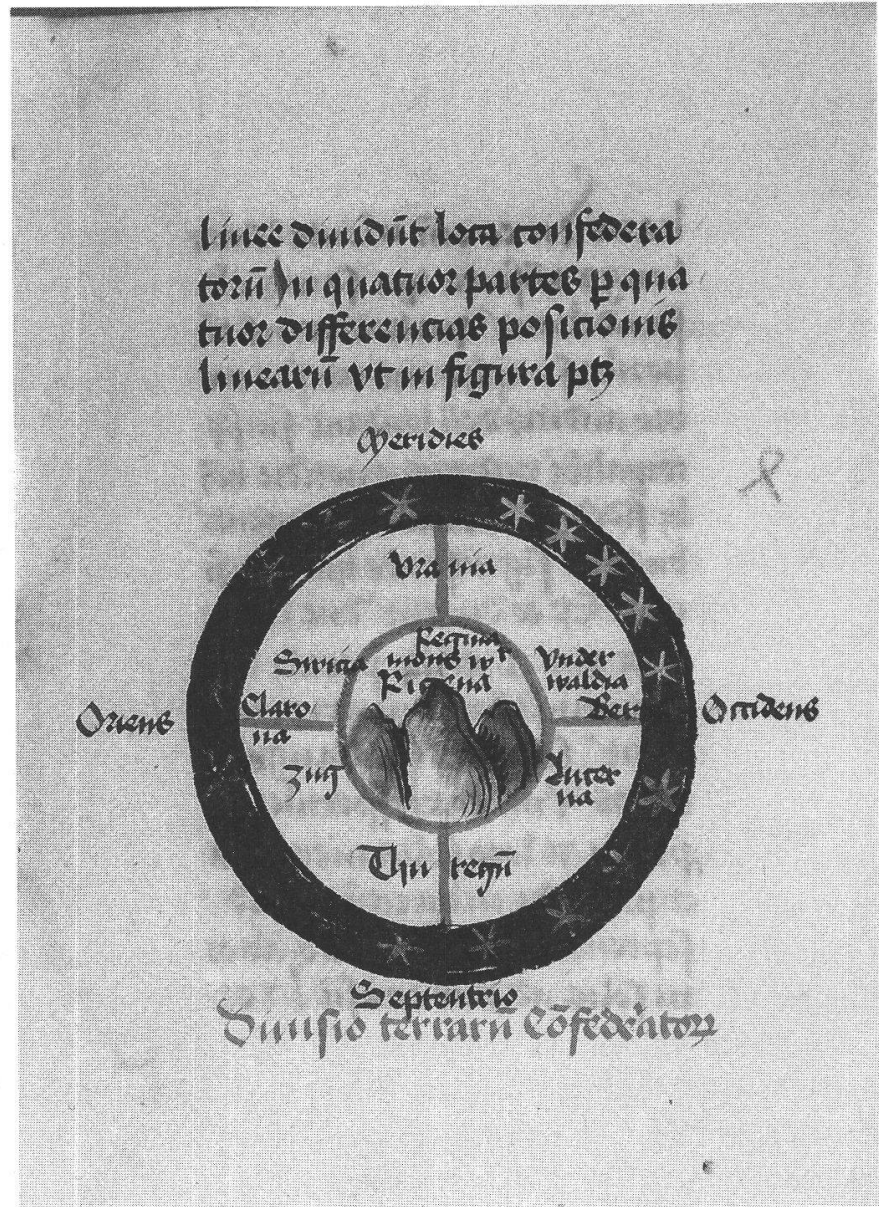 linee diuidūt loca confedera
torū In quatuor partes ꝑ qua
tuor differencias posicionis
linearū vt in figura ptꝫ
Meridies
Vrania
Regina
Swicia mons Vnder
Rigena waldia
Oriens Claro Ber Occidens
na
Zug Lucer
na
Thu regū
Septentrio
Diuisio terrarū Cōfederatorꝝ